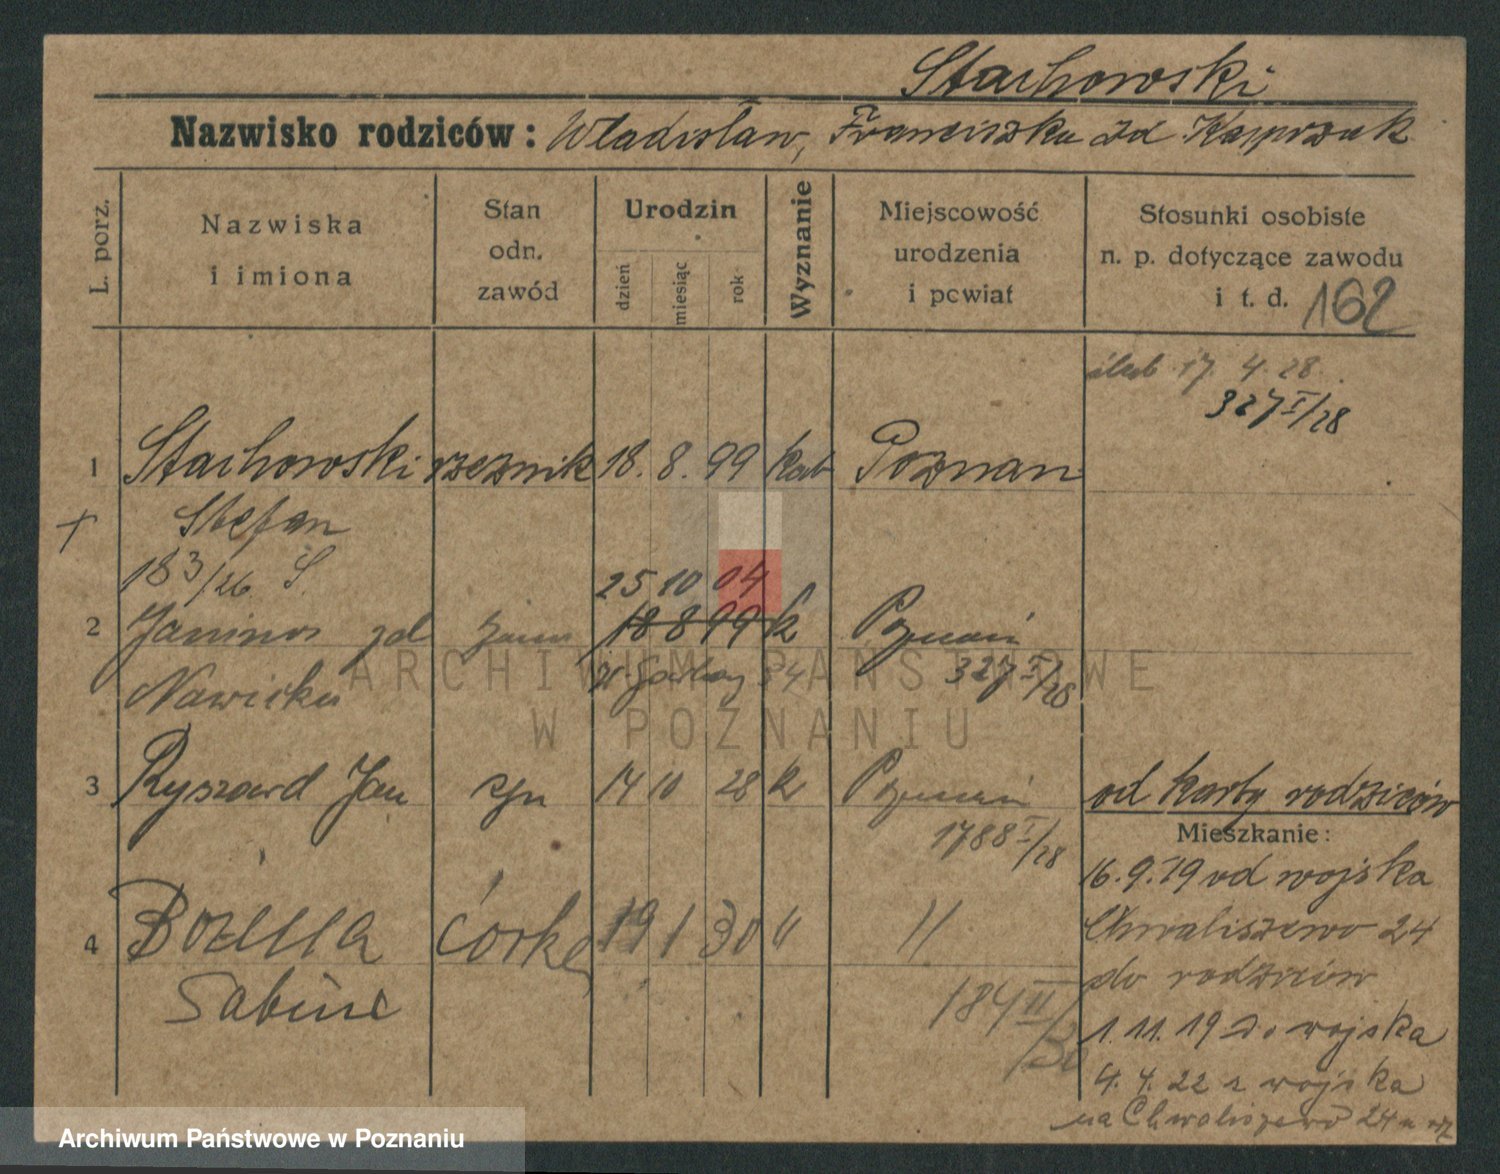 Stachowski
Nazwisko rodziców: Władisław, Franciszka zd Kasprzak
L. porz.
Nazwiska i imiona
Stan odn. zawód
Urodzin
dzień miesiąc rok
Wyznanie
Miejscowość urodzenia i powiat
Stosunki osobiste n. p. dotyczące zawodu i t. d. 162
ślub 17. 4. 28.
327 I/28
1 Stachowski rzeznik 18. 8. 99 kat Poznan
+ Stefan
183/26. S.
25 10 04
2 Janina zd żona 18 8 99 k Poznań
Nawicka 34 327 I/28
3 Ryszard Jan syn 14 10 28 k Poznań
1788 I/28
od karty rodziców
Mieszkanie:
16. 9. 19 od wojska
4 Bożena córka 19 1 30 " "
Sabine
184 II/30
Chwaliszewo 24
do rodziców
1. 11. 19 do wojska
4. 4. 22 z wojska
na Chwaliszewo 24
ARCHIWUM PAŃSTWOWE
W POZNANIU
Archiwum Państwowe w Poznaniu